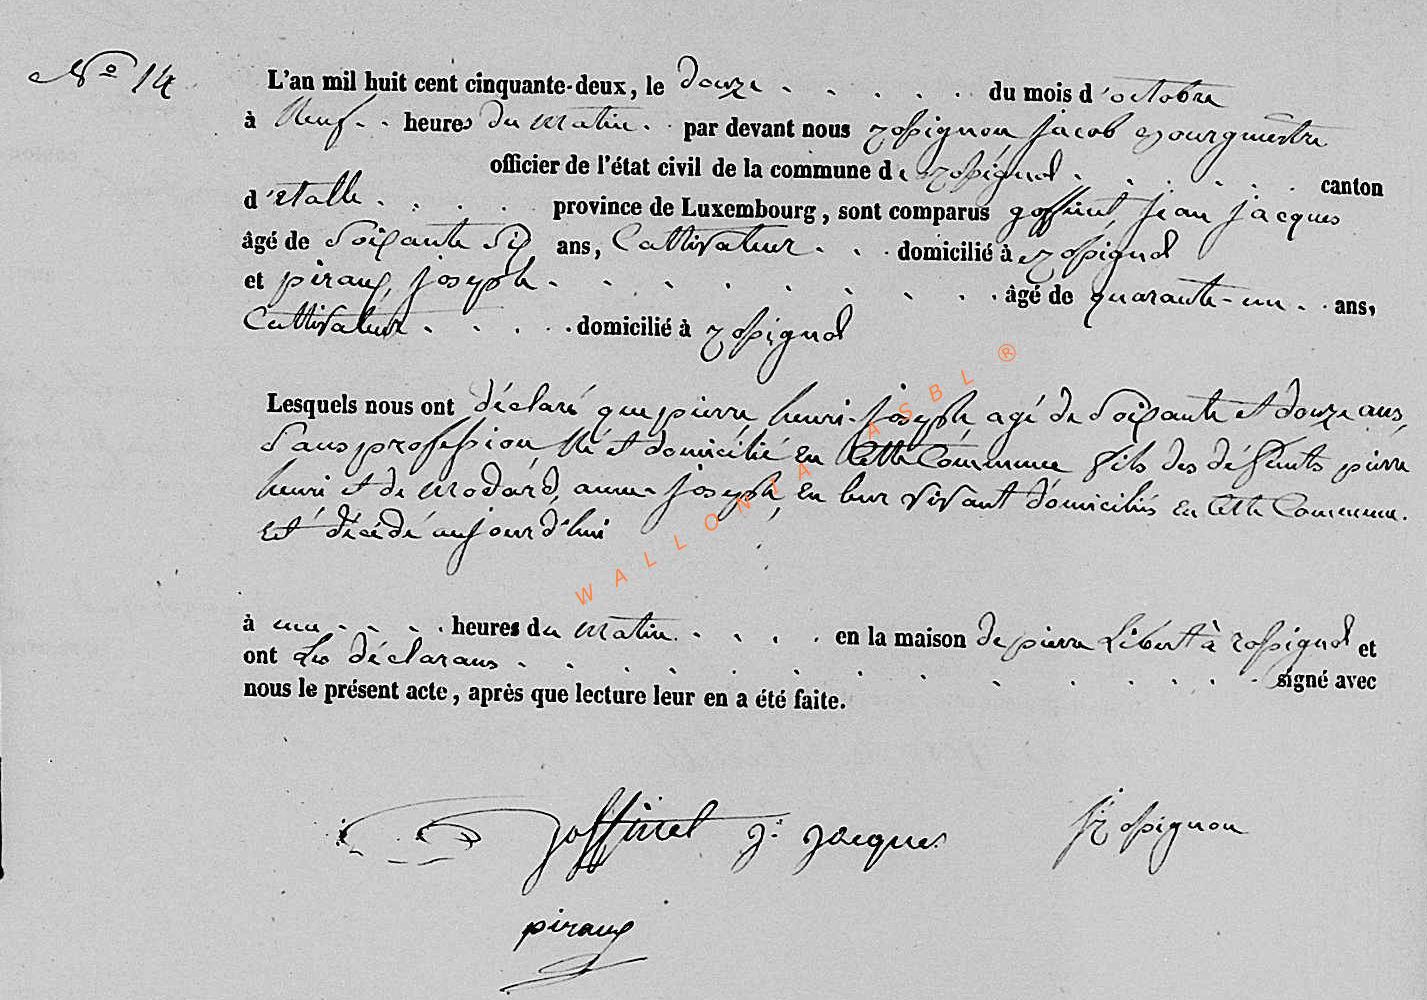 N° 14
L'an mil huit cent cinquante-deux, le douze . . . . . du mois d'octobre
à neuf . . heures du matin . par devant nous rossignon jacob bourgmestre
officier de l'état civil de la commune de rossignol . . . . . . canton
d'étalle . . . . province de Luxembourg, sont comparus goffinet jean jacques
âgé de soixante six ans, Cultivateur . . . domicilié à rossignol
et piraux joseph . . . . . . . . . âgé de quarante-un . . ans,
Cultivateur . . . . . domicilié à rossignol
Lesquels nous ont déclaré que pierre henri-joseph agé de soixante et douze ans,
sans profession né et domicilié en Cette Commune fils des défunts pierre
henri et de modard, anne joseph, en leur vivant domiciliés en Cette Commune.
Est décédé aujourd'hui
à un . . . . heures du matin . . . . . en la maison de pierre Libert à rossignol et
ont les déclarans . . . . . . . . . . . . signé avec
nous le présent acte, après que lecture leur en a été faite.
goffinet j: jacques
J rossignon
piraux
WALLONIA ASBL ®